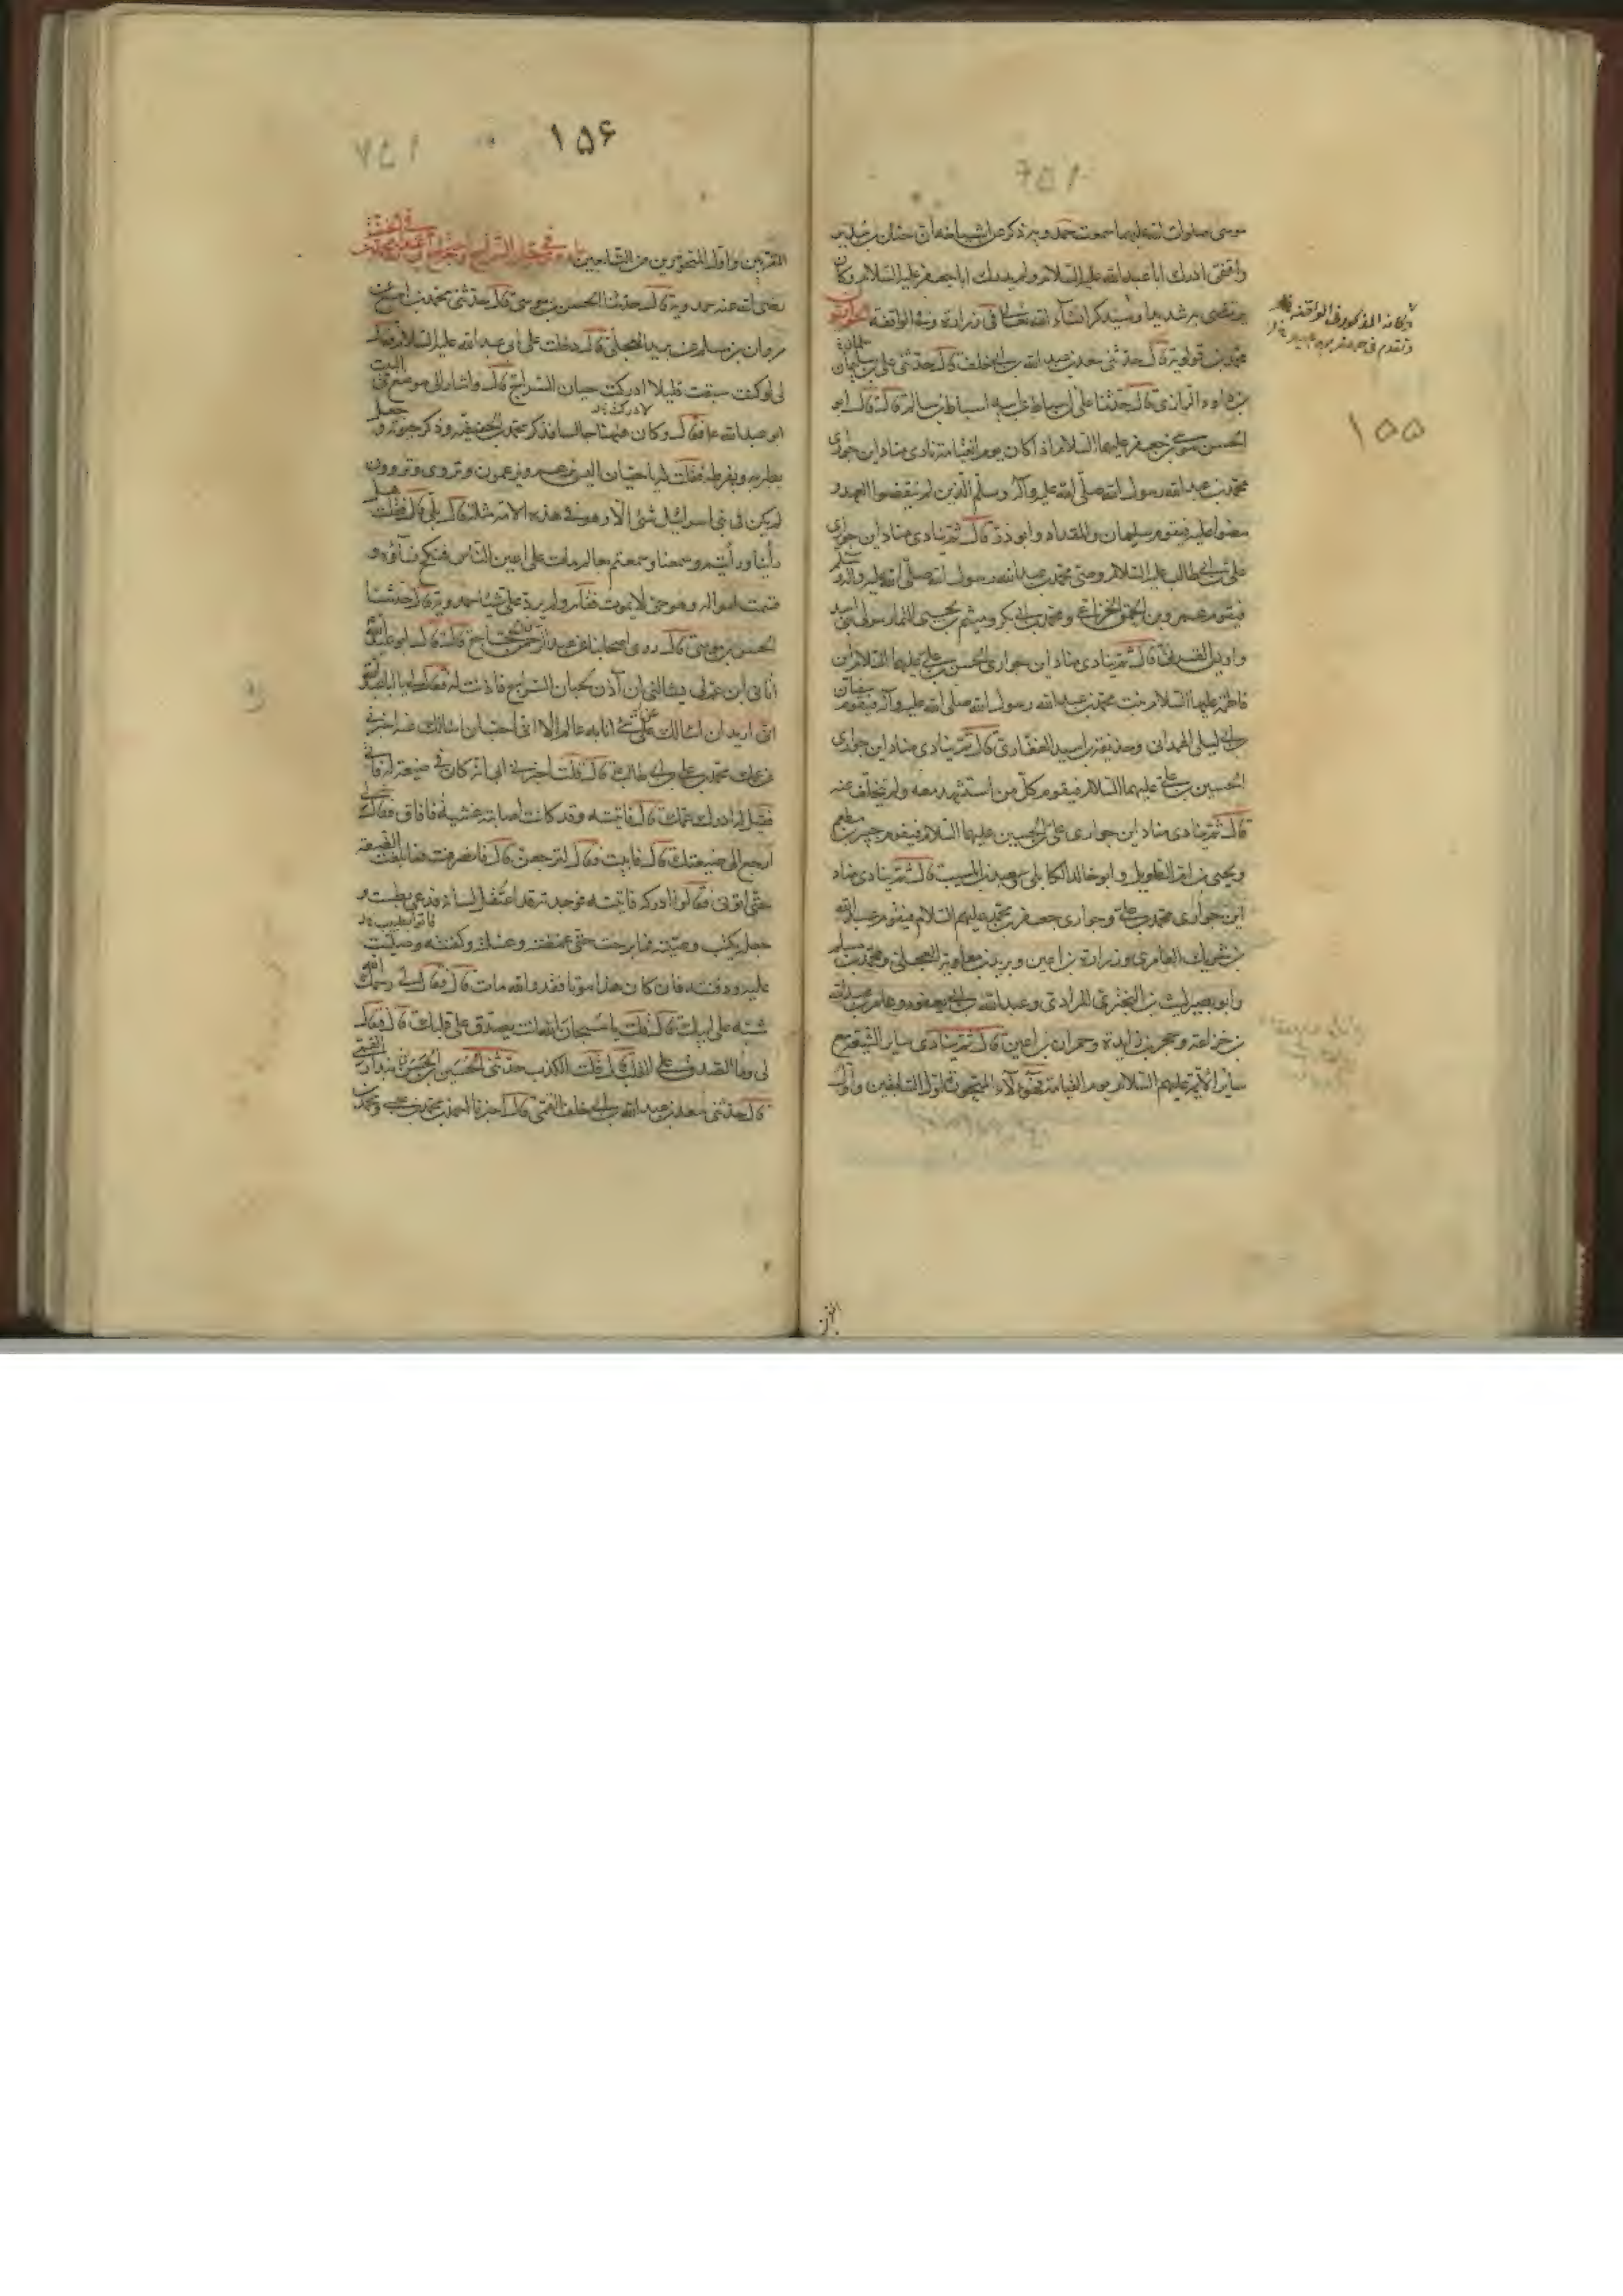 موسى صلوات الله عليهما سمعت حمدويه ذكر عن اشياخه ان حنان بن سدير
واقفى ادرك ابا عبد الله عليه السلام ولم يدرك ابا جعفر عليه السلام وكان
يرتضى به شديدا وسيذكر انشاء الله تعالى فى زرارة وفى الواقفة الحواريون
محمد بن قولويه قال حدثنى سعد بن عبد الله بن ابى خلف قال حدثنى على بن سليمان
بن داود الرازى قال حدثنا على بن اسباط عن ابيه اسباط بن سالم قال قال ابو
الحسن موسى بن جعفر عليهما السلام اذا كان يوم القيامة نادى مناد اين حوارى
محمد بن عبد الله رسول الله صلى الله عليه وآله وسلم الذين لم ينقضوا العهد و
مضوا عليه فيقوم سلمان والمقداد وابو ذر قال ثم ينادى مناد اين حوارى
على بن ابى طالب عليه السلام وصى محمد بن عبد الله رسول الله صلى الله عليه وآله وسلم
فيقوم عمرو بن الحمق الخزاعى ومحمد بن ابى بكر وميثم بن يحيى التمار مولى بنى اسد
واويس القرنى قال ثم ينادى مناد اين حوارى الحسن بن على عليهما السلام ابن
فاطمة عليها السلام بنت محمد بن عبد الله رسول الله صلى الله عليه وآله فيقوم سفيان
بن ابى ليلى الهمدانى وحذيفة بن اسيد الغفارى قال ثم ينادى مناد اين حوارى
الحسين بن على عليهما السلام فيقوم كل من استشهد معه ولم يتخلف عنه
قال ثم ينادى مناد اين حوارى على بن الحسين عليهما السلام فيقوم جبير بن مطعم
ويحيى بن ام الطويل وابو خالد الكابلى وسعيد بن المسيب قال ثم ينادى مناد
اين حوارى محمد بن على وحوارى جعفر بن محمد عليهم السلام فيقوم عبد الله
بن شريك العامرى وزرارة بن اعين وبريد بن معاوية العجلى ومحمد بن مسلم
وابو بصير ليث بن البخترى المرادى وعبد الله بن ابى يعفور وعامر بن عبد الله
بن خزاعة وحجر بن زايدة وحمران بن اعين قال ثم ينادى ساير الشيعة مع
ساير الائمة عليهم السلام يوم القيامة فهؤلاء المتحورة اول السابقين واول
وكانه المذكور فى الواقفة
وتقدم فى
١٥٥
١٥۶
المقربين واول المتحورين من التابعين ما روى فى حيان السراج
رضى الله عنه حمدويه قال حدثنا الحسن بن موسى قال حدثنى محمد بن اصبغ
مروان بن مسلم عن بريد العجلى قال دخلت على ابى عبد الله عليه السلام فقال
لى لو كنت سبقت قليلا ادركت حيان السراج قال واشار الى موضع فى البيت
ابو عبد الله ع فقال وكان هيهنا جالسا فذكر محمد بن الحنفية وذكر حيوته وجعل
يطريه ويقرظه فقلت له يا حيان اليس تزعم ويزعمون وتروى ويروون
لم يكن فى بنى اسرائيل شئ الا وهو فى هذه الامة مثله قال بلى قال فقلت هل
رأينا ورأيتم وسمعنا وسمعتم بعالم مات على اعين الناس فنكح نساؤه و
قسمت امواله وهو حى لا يموت فقام ولم يرد على شيئا حمدويه قال حدثنا
الحسن بن موسى قال روى اصحابنا عن عبد الرحمن بن الحجاج قال قال ابو عبد الله
اتانى ابن عم لى يسالنى ان آذن لحيان السراج فاذنت له فقال لى يا ابا عبد الله
انى اريد ان اسالك عن شئ انا به عالم الا انى احب ان اسالك عنه اخبرنى
عن عمك محمد بن على بن ابى طالب قال قلت اخبرنى ابى انه كان فى ضيعة له فاتى
فقيل له ادرك عمك قال فاتيته وقد كانت اصابته غشية فافاق فقال لى
ارجع الى ضيعتك قال فابيت فقال لترجعن قال فانصرفت فما بلغت الضيعة
حتى اتونى فقالوا ادركه فاتيته فوجدته قد اعتقل لسانه فدعى بطست و
جعل يكتب وصيته فما برحت حتى غمضته وغسلته وكفنته وصليت
عليه ودفنته فان كان هذا موتا فقد والله مات قال فقال لى رحمك الله
شبه على ابيك قال قلت يا سبحان الله انت تصدف على قلبك قال فقال
لى وما الصدف على القلب قال قلت الكذب حدثنى الحسين بن الحسن بن بندار القمى
قال حدثنى سعد بن عبد الله بن ابى خلف القمى قال اخبرنا احمد بن محمد بن عيسى ومحمد بن